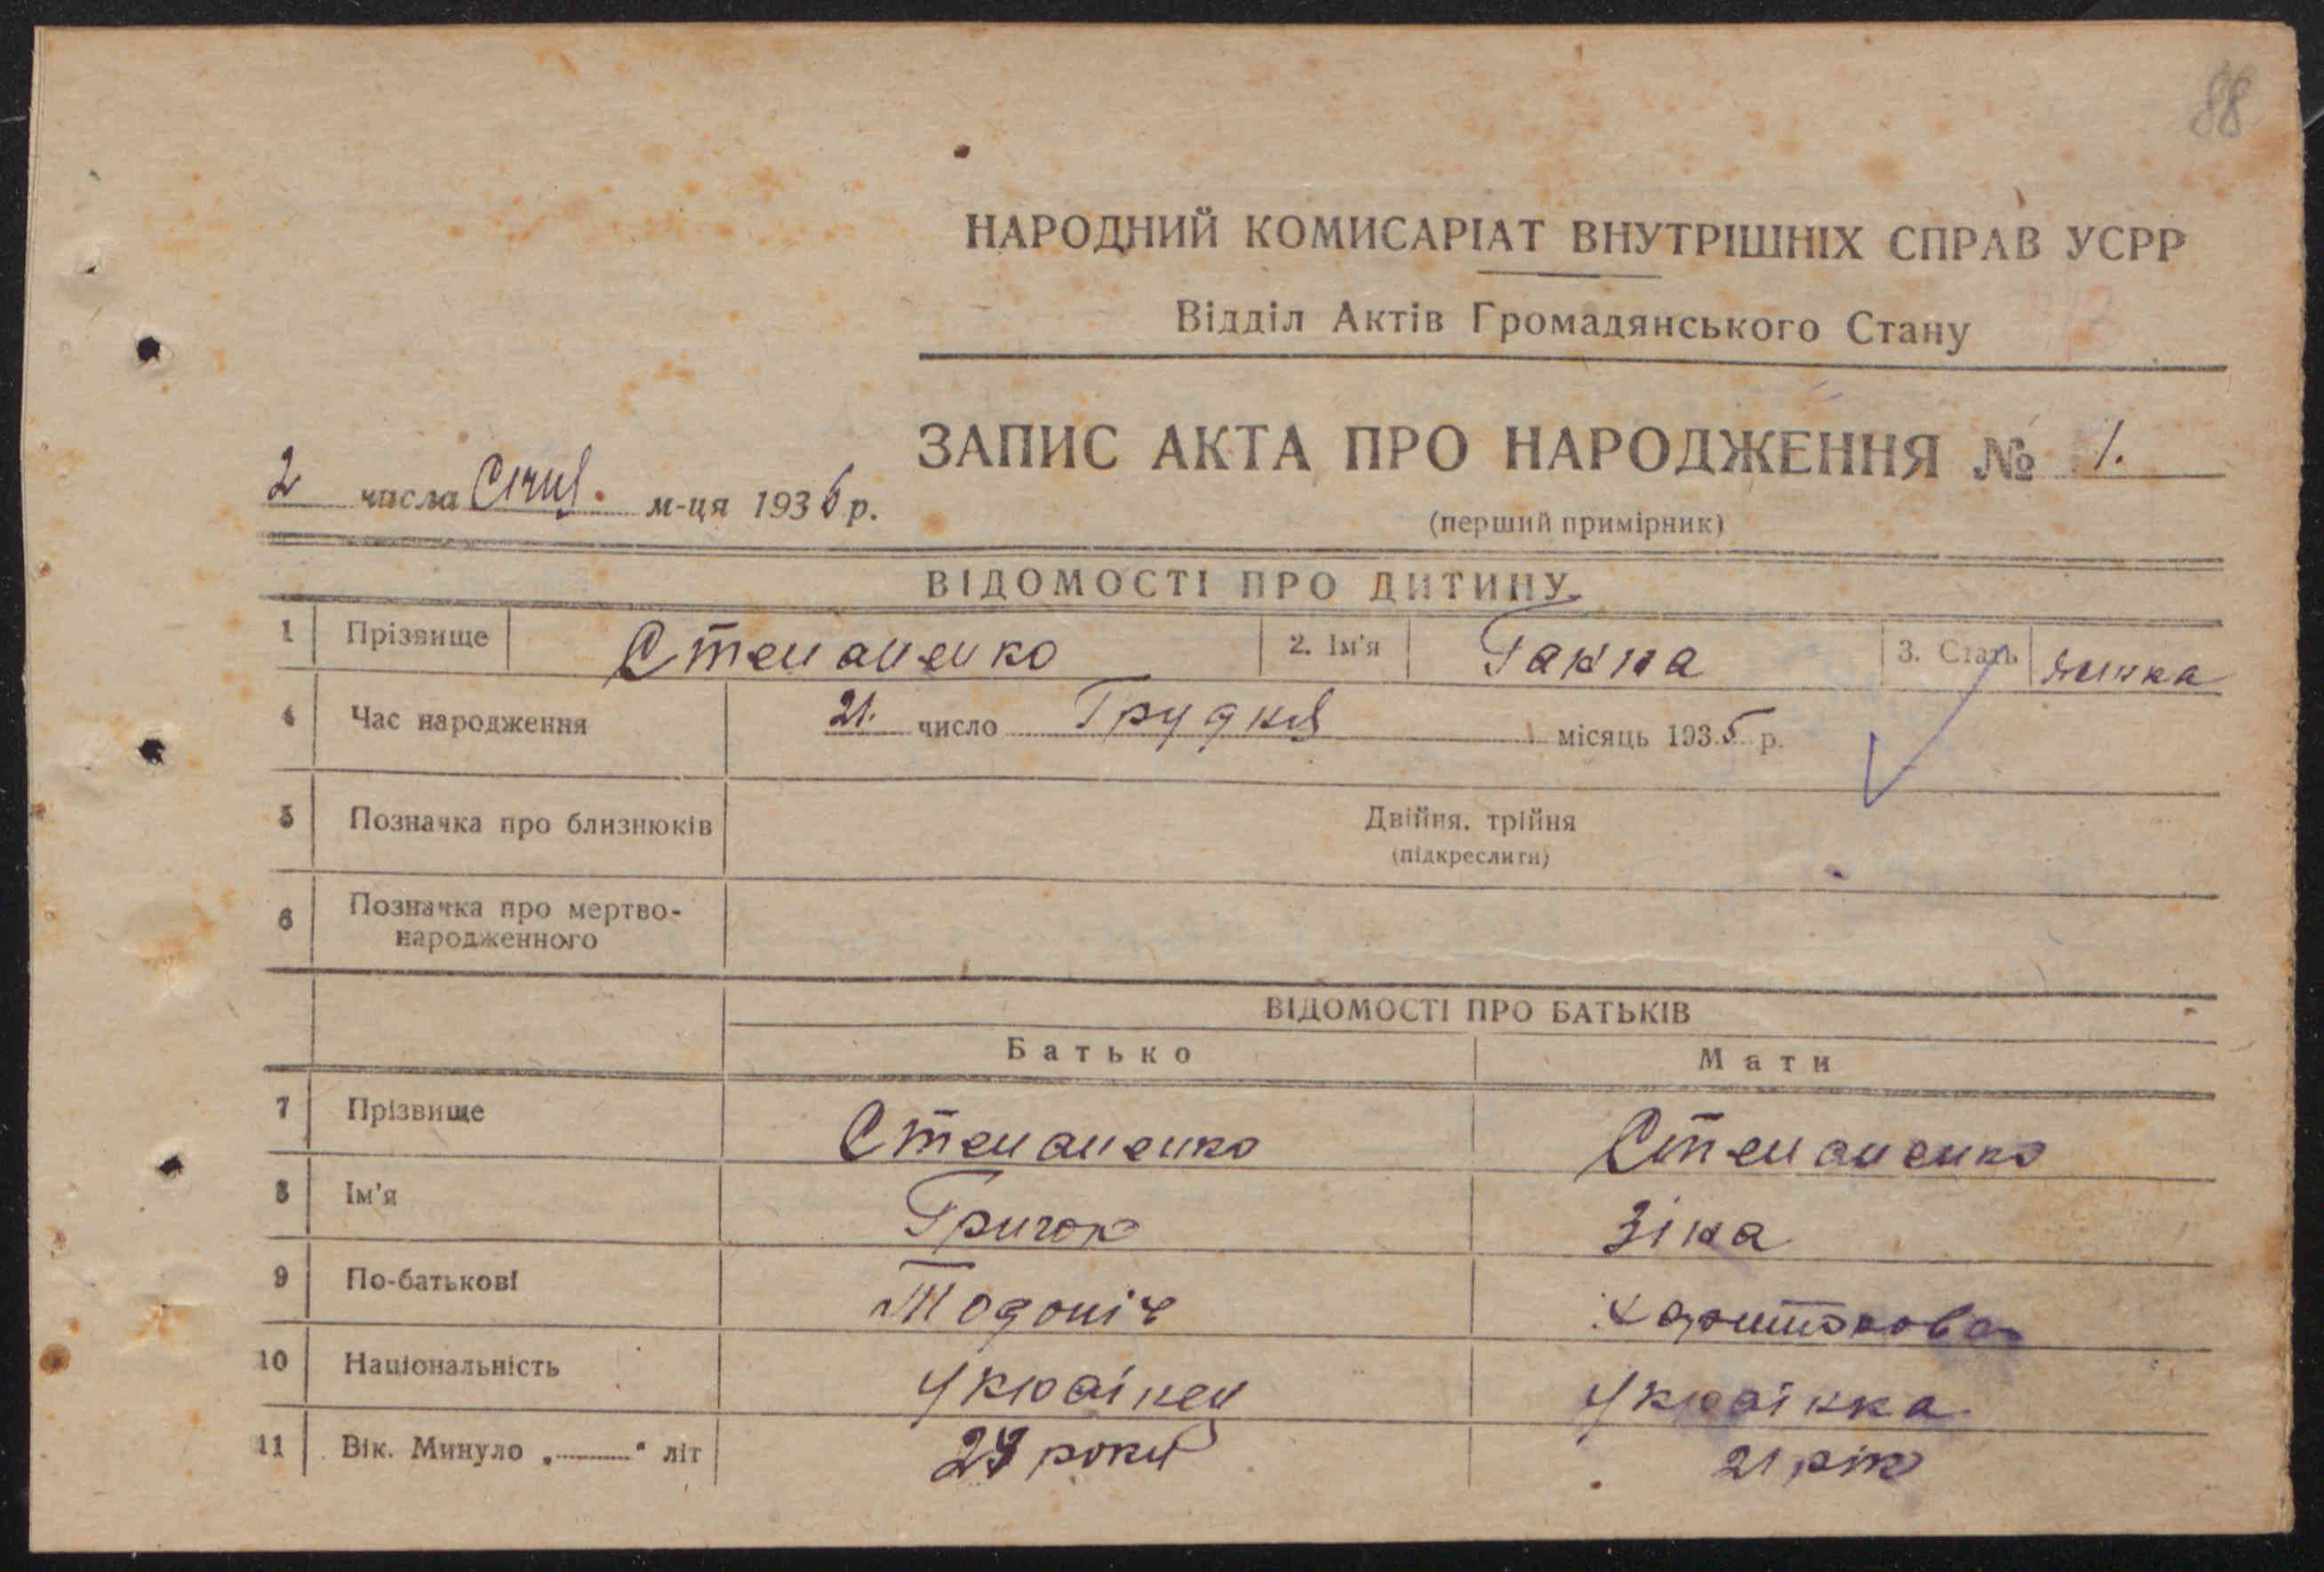 88
НАРОДНИЙ КОМИСАРІАТ ВНУТРІШНІХ СПРАВ УСРР
Відділ Актів Громадянського Стану
ЗАПИС АКТА ПРО НАРОДЖЕННЯ № 1.
2 числа Січня м-ця 1936 р.
(перший примірник)
ВІДОМОСТІ ПРО ДИТИНУ
1 Прізвище Степаненко 2. Ім'я Ганна 3. Стать жінка
4 Час народження 21. число Грудня місяць 1935 р.
5 Позначка про близнюків Двійня, трійня
(підкреслити)
6 Позначка про мертво-
народженного
ВІДОМОСТІ ПРО БАТЬКІВ
Батько Мати
7 Прізвище Степаненко Степаненко
8 Ім'я Григор Зіна
9 По-батькові Харитонова
10 Національність Українець Українка
11 Вік. Минуло „ “ літ 24 роки 21 рік